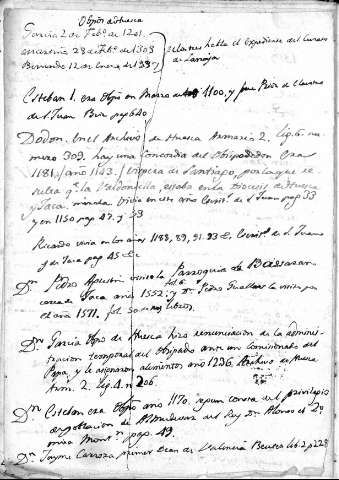 Obpos de Huesca
Garcia 2 de Feb.º de 1201.
28 de Feb.º de 1303
Bernardo 12 de Enero de 1337
de los tres habla el Expediente del Curato
de Larraya
Esteban 1. era Obpo en Marzo de 1100, y fue Prior de Claustro
de S. Juan pag 640
Dodon. En el Archivo de Huesca Armario 2. lig. 6. nu-
mero 309. hay una Concordia del Obispo Dodon era
1181, año 1143. vispera de Santiago, por la que re-
sulta q.e la Valdonsella estaba en la Diocesis de Huesca
y Jaca. vivia en este año S. Juan pag 33
y en 1150 pag. 47. y 53
Ricardo vivia en los años 1188, 89, 91. 93 &. S. Juan
y de Jaca pag 45 &.
Dn. Pedro Agustin visitó la Parroquia de Bassaran
como de Jaca año 1552. y Dn. Pedro la visitó por
el año 1571. fol. 50 libros.
Dn. Garcia Obpo de Huesca hizo renunciacion de la adminis-
tracion temporal del Obispado ante un Comisionado del
Papa, y le asignaron alimentos año 1236. Archivo de Huesca
Arm. 2. lig. 4. n. 206.
Dn. Esteban era Obpo año 1170. segun consta del privilegio
de poblacion de del Rey Dn. Alonso el 2º
pag. 49.
Dn. Jayme Carroza primer Dean de Valencia Beuter lib. 2 p 228